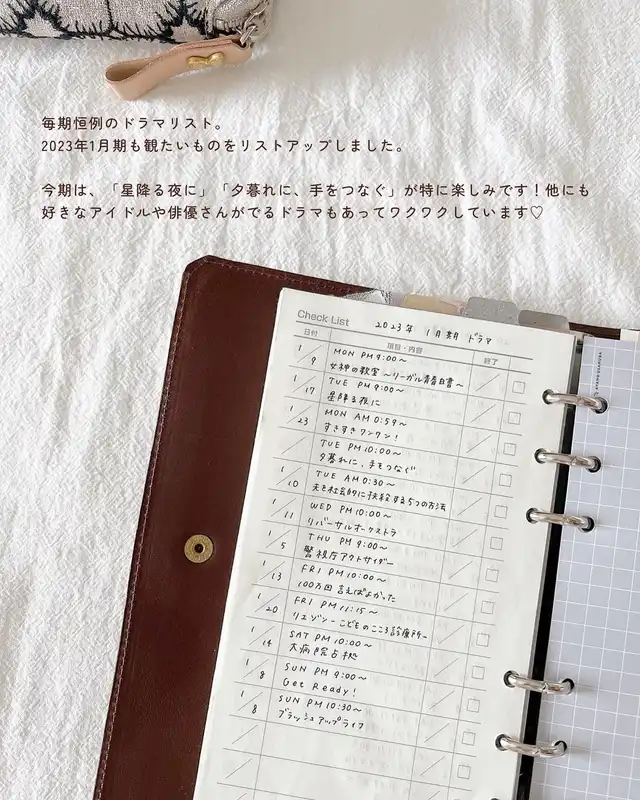 毎期恒例のドラマリスト。
2023年1月期も観たいものをリストアップしました。
今期は、「星降る夜に」「夕暮れに、手をつなぐ」が特に楽しみです！他にも
好きなアイドルや俳優さんがでるドラマもあってワクワクしています♡
Check List 2023年 1月期 ドラマ
日付 項目・内容 終了
1/9 MON PM 9:00〜
女神の教室 〜リーガル青春白書〜
1/17 TUE PM 9:00〜
星降る夜に
1/23 MON AM 0:59〜
すきすきワンワン!
TUE PM 10:00〜
夕暮れに、手をつなぐ
1/10 TUE AM 0:30〜
夫を社会的に抹殺する5つの方法
1/11 WED PM 10:00〜
リバーサルオーケストラ
1/5 THU PM 9:00〜
警視庁アウトサイダー
1/13 FRI PM 10:00〜
100万回 言えばよかった
1/20 FRI PM 11:15〜
リエゾン-こどものこころ診療所-
1/14 SAT PM 10:00〜
大病院占拠
1/8 SUN PM 9:00〜
Get Ready!
1/8 SUN PM 10:30〜
ブラッシュアップライフ